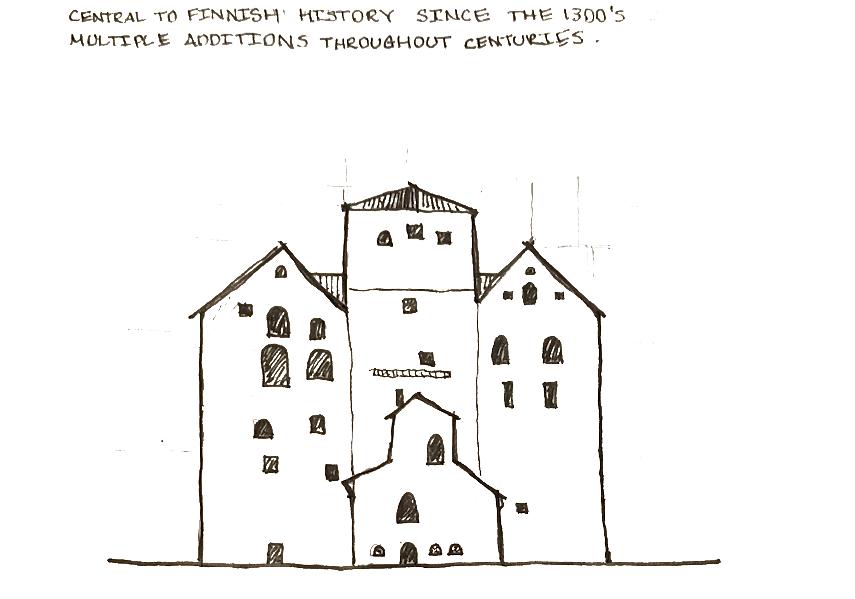 CENTRAL TO FINNISH HISTORY SINCE THE 1300'S
MULTIPLE ADDITIONS THROUGHOUT CENTURIES.